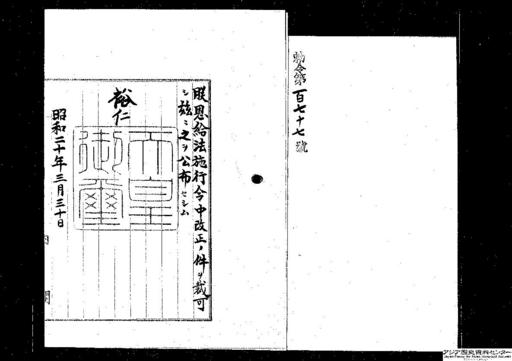 勅令第百七十七號
朕恩給法施行令中改正ノ件ヲ裁可
シ茲ニ之ヲ公布セシム
裕仁
天皇御璽
昭和二十年三月三十日
内閣
アジア歴史資料センター